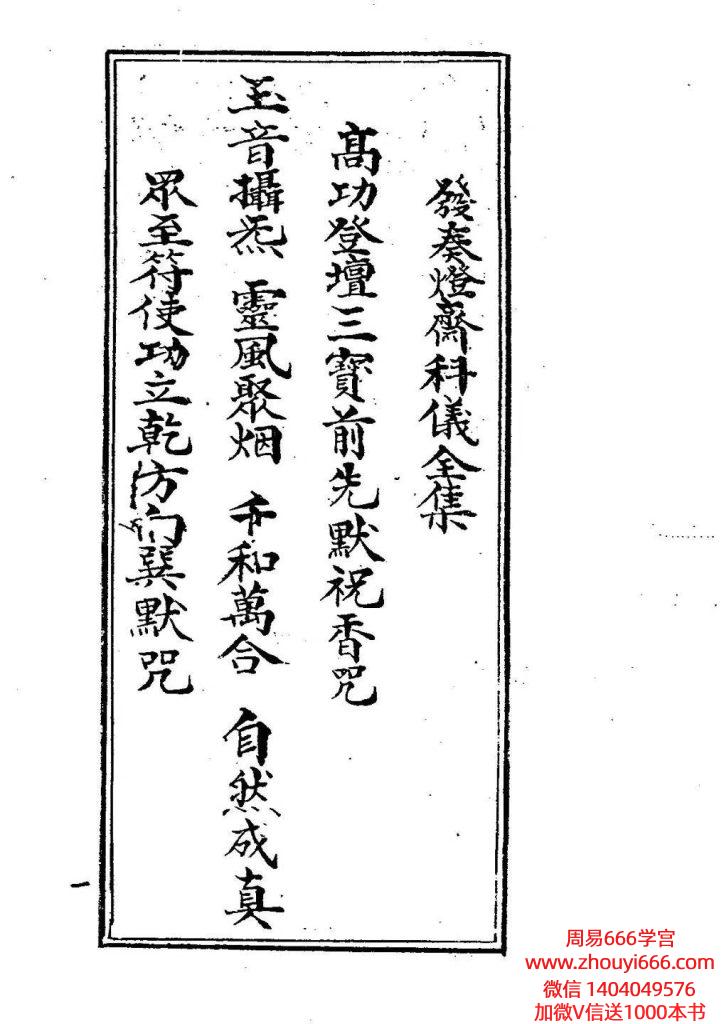 發奏燈齋科儀全集
高功登壇三寶前先默祝香咒
玉音攝炁 靈風聚烟 千和萬合 自然成真
眾至符使功立乾方向巽默咒
一
周易666学宫
www.zhouyi666.com
微信 1404049576
加微V信送1000本书